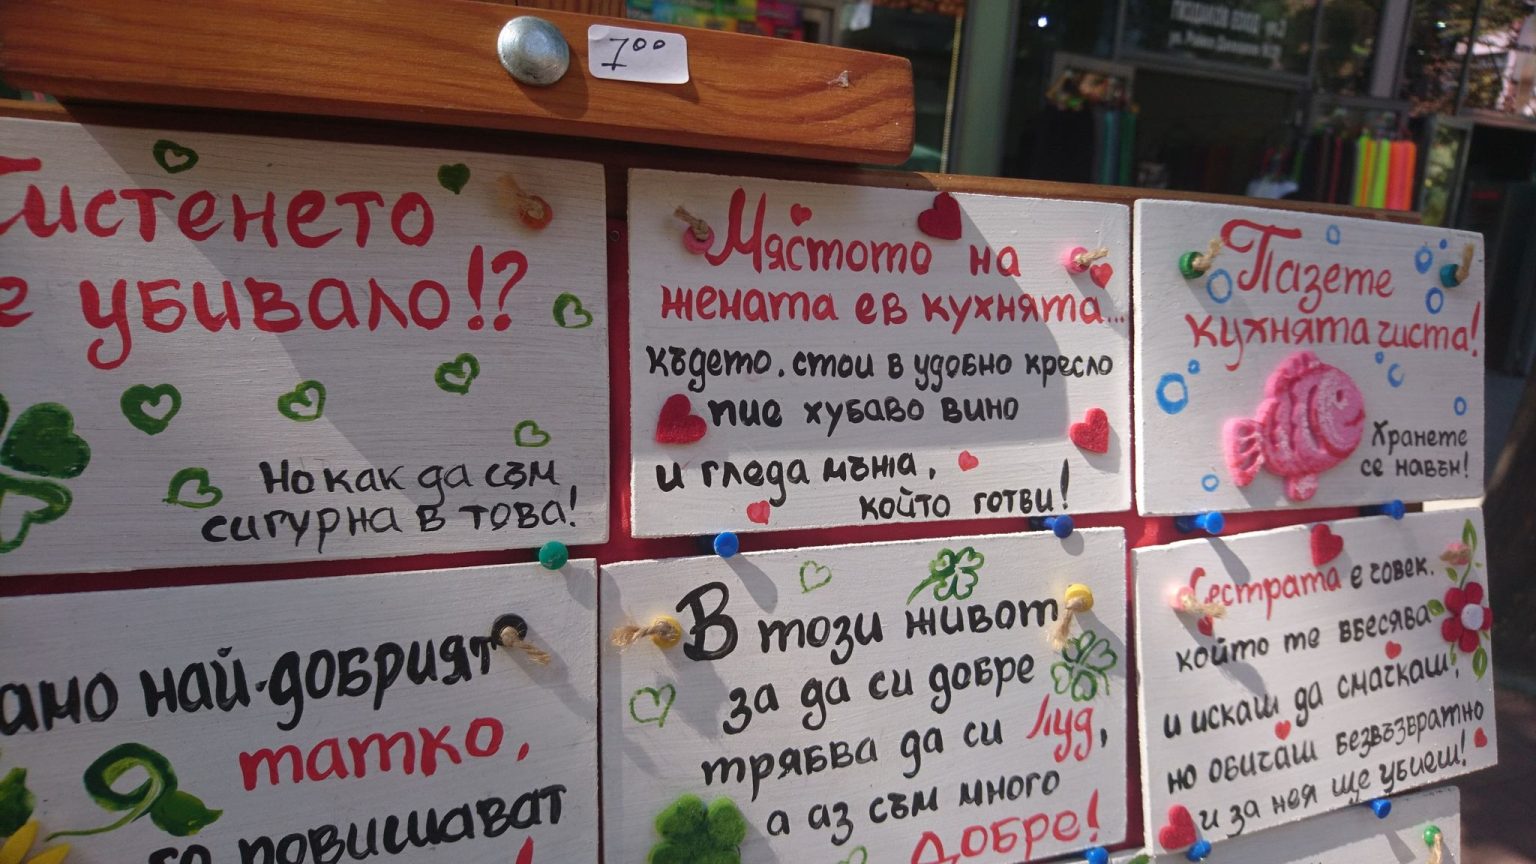 7⁰⁰
Пистенето
е убивало!?
Но как да съм
сигурна в това!
Мястото на
жената е в кухнята...
където, стои в удобно кресло
пие хубаво вино
и гледа мъжа,
който готви!
Пазете
кухнята чиста!
Хранете
се навън!
най-добрият
татко,
повишават
В този живот
за да си добре
трябва да си Луд,
а аз съм много
Добре!
Сестрата е човек,
който те вбесява
и искаш да смачкаш,
но обичаш безвъзвратно
и за нея ще убиеш!